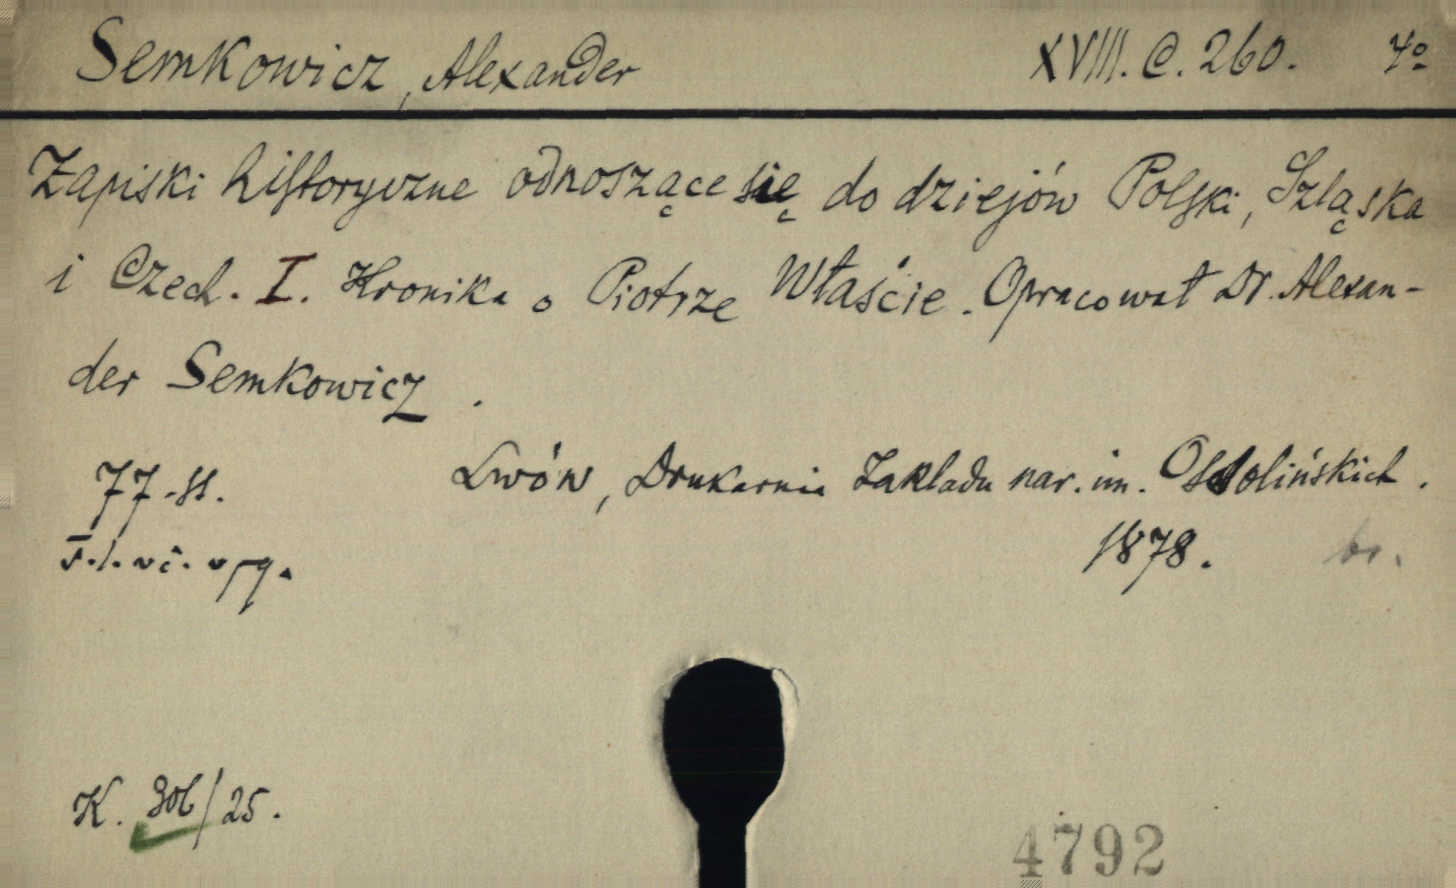 Semkowicz, Alexander XVIII. C. 260. 4º
Zapiski historyczne odnoszące się do dziejów Polski, Szląska
i Czech. I. Kronika o Piotrze Właście. Opracował Dr. Alexan-
der Semkowicz.
Lwów, Drukarnia Zakładu nar. im. Ossolińskich.
77 - st.
1878. br.
K. /25.
4792